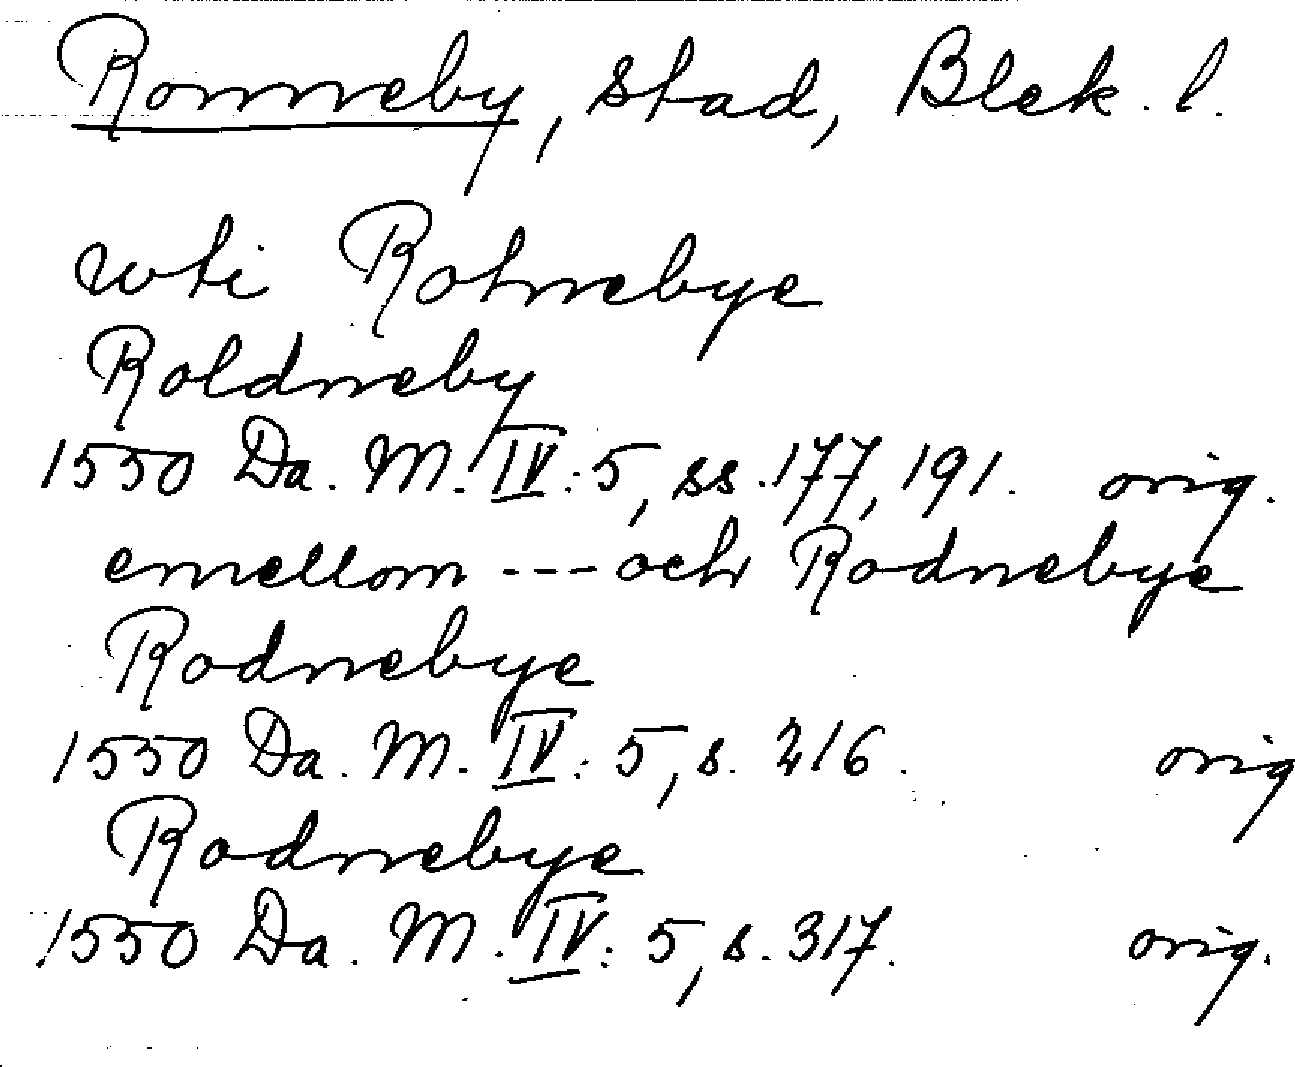 Ronneby, stad, Blek. l.
wti Rotnebye
Roldneby
1550 Da. M. IV: 5, ss. 177, 191. orig.
emellom --- och Rodnebye
Rodnebye
1550 Da. M. IV: 5, s. 216. orig
Rodnebye
1550 Da. M. IV: 5, s. 317. orig.